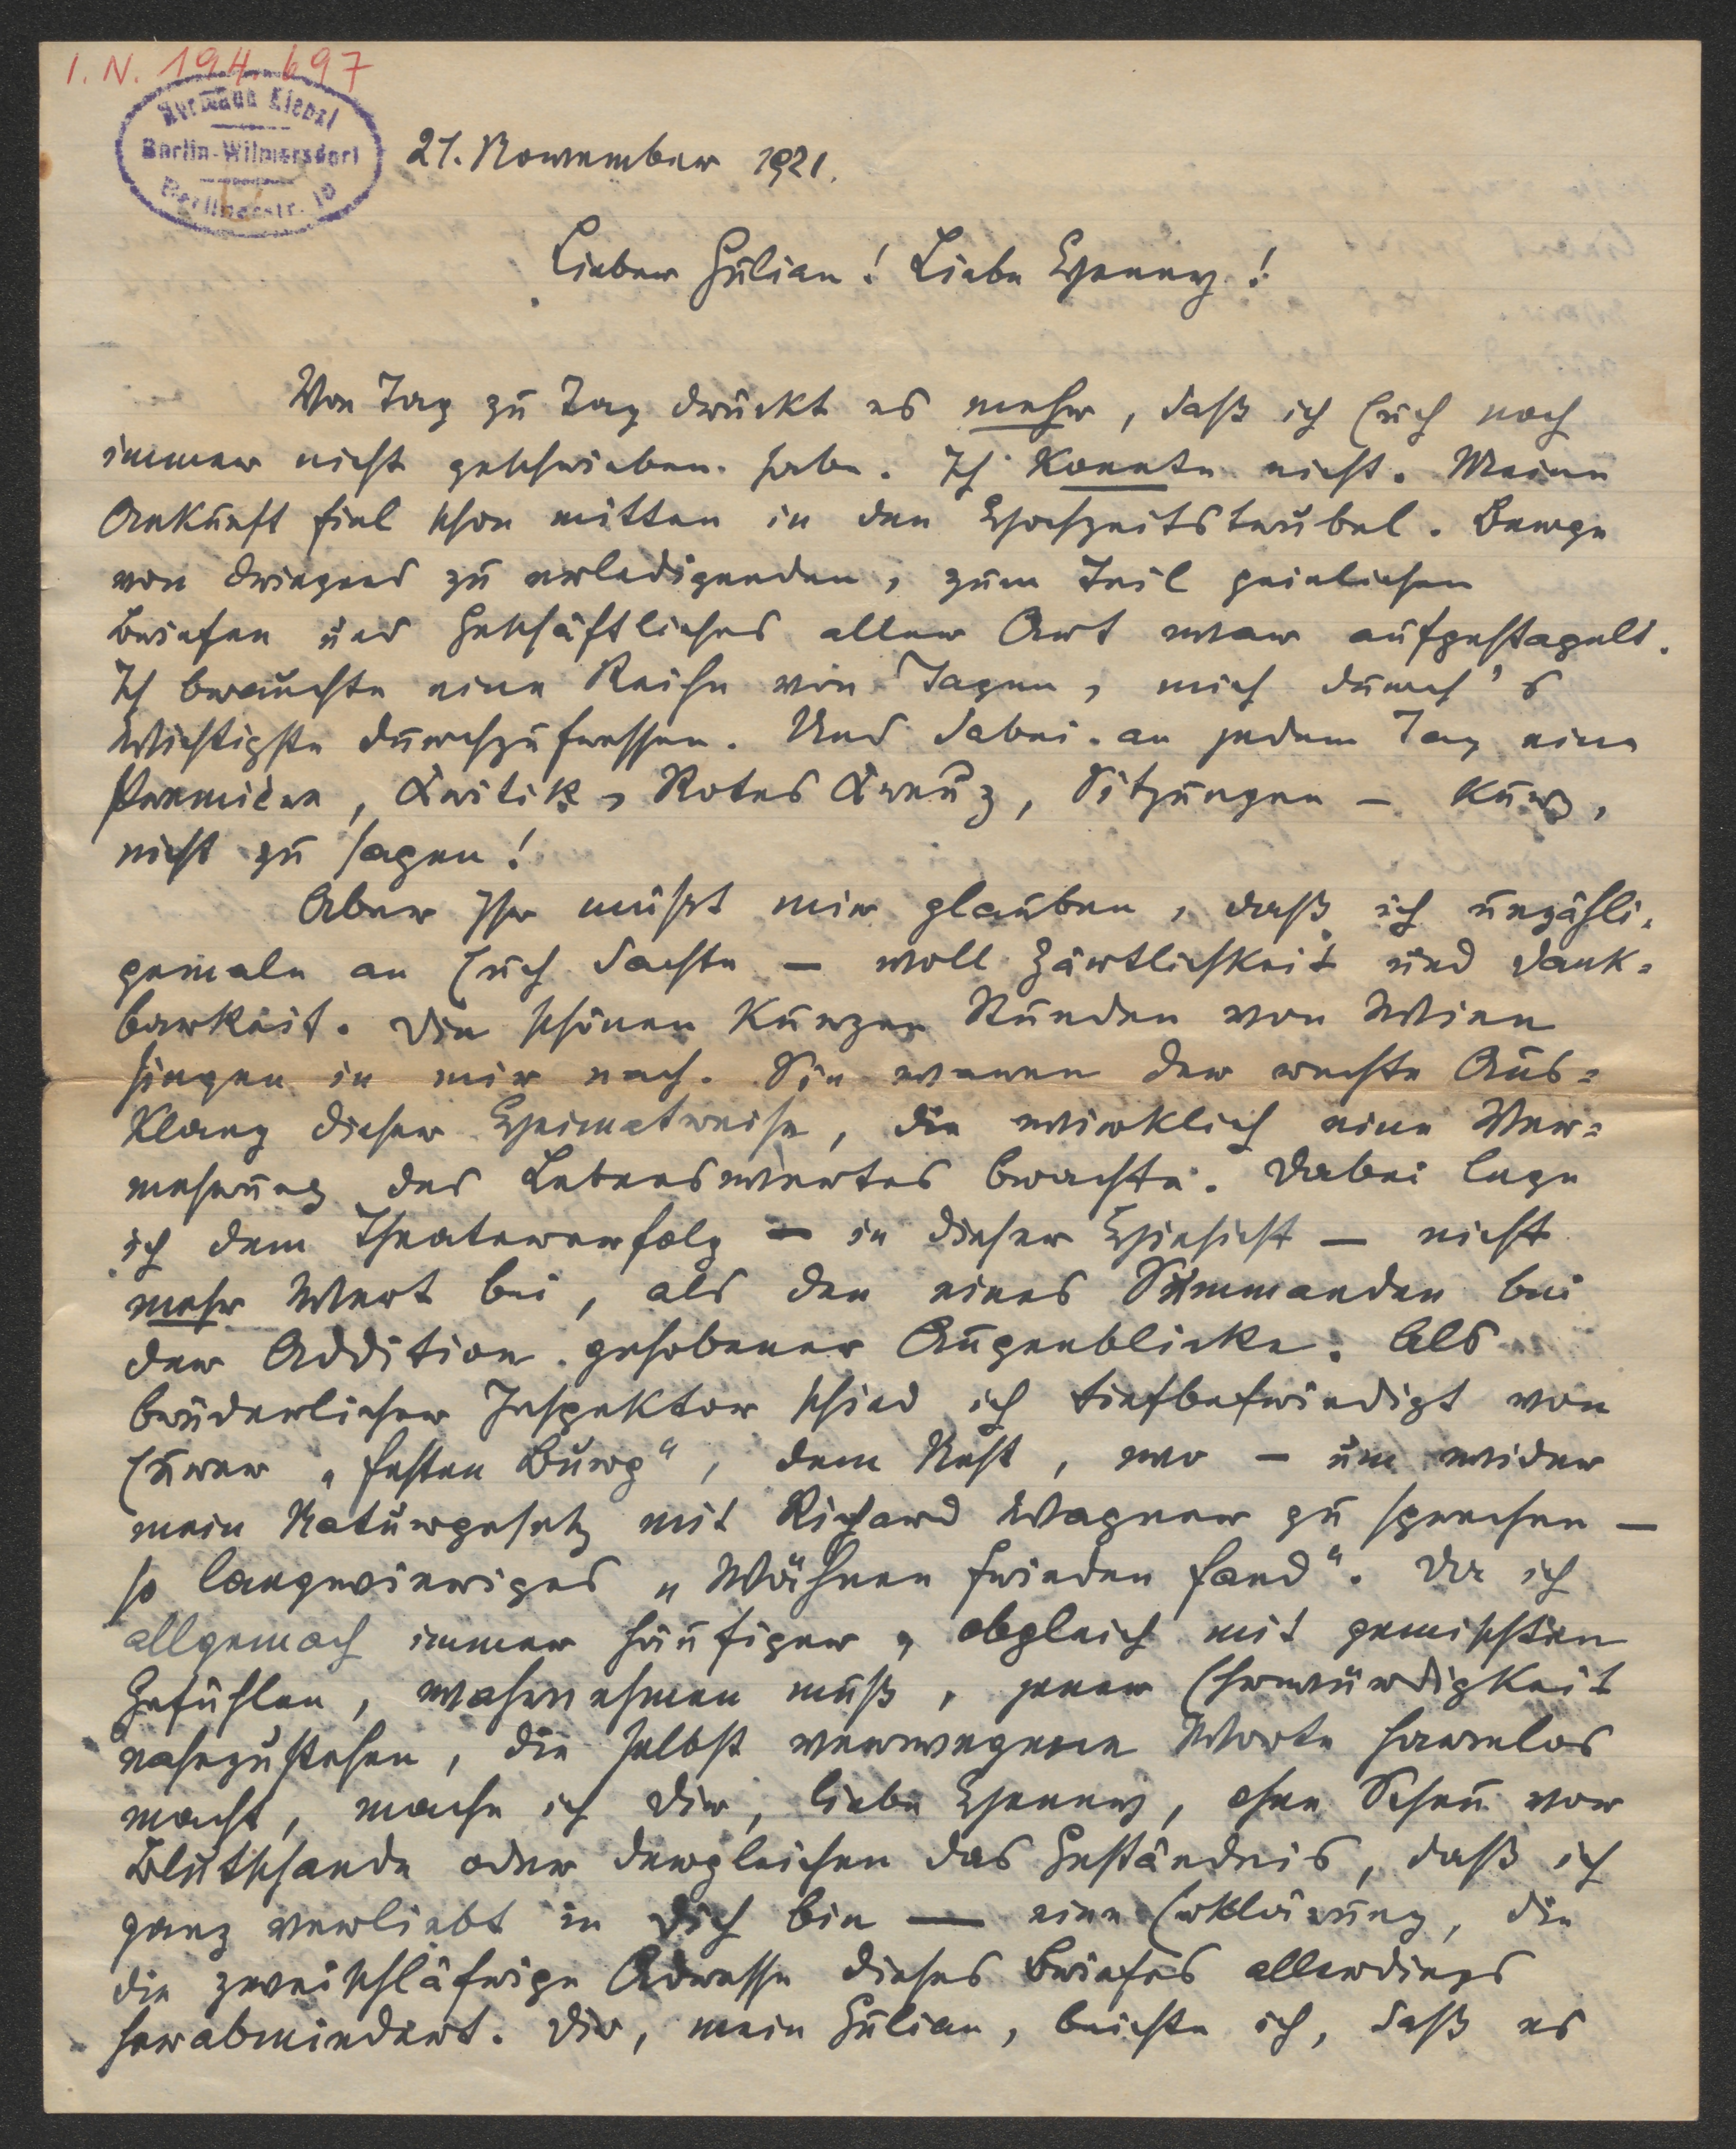 I. N. 194.697
Hermann Kienzl
Berlin-Wilmersdorf
Berlinerstr. 10
21. November 1921.
Lieber Julian! Liebe Henny!
Von Tag zu Tag drückt es mehr, daß ich Euch noch
immer nicht geschrieben habe. Ich konnte nicht. Meine
Ankunft fiel schon mitten in den Hochzeitstrubel. Berge
von dringend zu erledigenden, zum Teil peinlichen
Briefen und Geschäftliches aller Art war aufgestapelt.
Ich brauchte eine Reihe von Tagen, mich durch's
Wichtigste durchzufressen. Und dabei an jedem Tag eine
Premiere, Kritik, Rotes Kreuz, Sitzungen – kurz,
nicht zu sagen!
Aber Ihr müßt mir glauben, daß ich unzähli-
gemale an Euch dachte – voll Zärtlichkeit und Dank=
barkeit. Die schönen kurzen Stunden von Wien
singen in mir nach. Sie waren der rechte Aus=
klang dieser Heimatreise, die wirklich eine Ver=
mehrung des Lebenswertes brachte. Dabei lege
ich dem Theatererfolg – in dieser Hinsicht – nicht
mehr Wert bei, als den eines Summanden bei
der Addition gehobener Augenblicke. Als
brüderlicher Inspektor schied ich tiefbefriedigt von
Eurer „festen Burg“, dem Nest, wo – um wider
mein Naturgesetz mit Richard Wagner zu sprechen –
so langwieriges „Wähnen Frieden fand“. Da ich
allgemach immer häufiger, obgleich mit gemischten
Gefühlen, wahrnehmen muß, jener Ehrwürdigkeit
nahezustehen, die selbst verwegene Worte harmlos
macht, mache ich Dir, liebe Henny, ohne Scheu vor
Blutschande oder dergleichen das Geständnis, daß ich
ganz verliebt in Dich bin — eine Erklärung, die
die zweischläfrige Adresse dieses Briefes allerdings
herabmindert. Dir, mein Julian, beichte ich, daß es